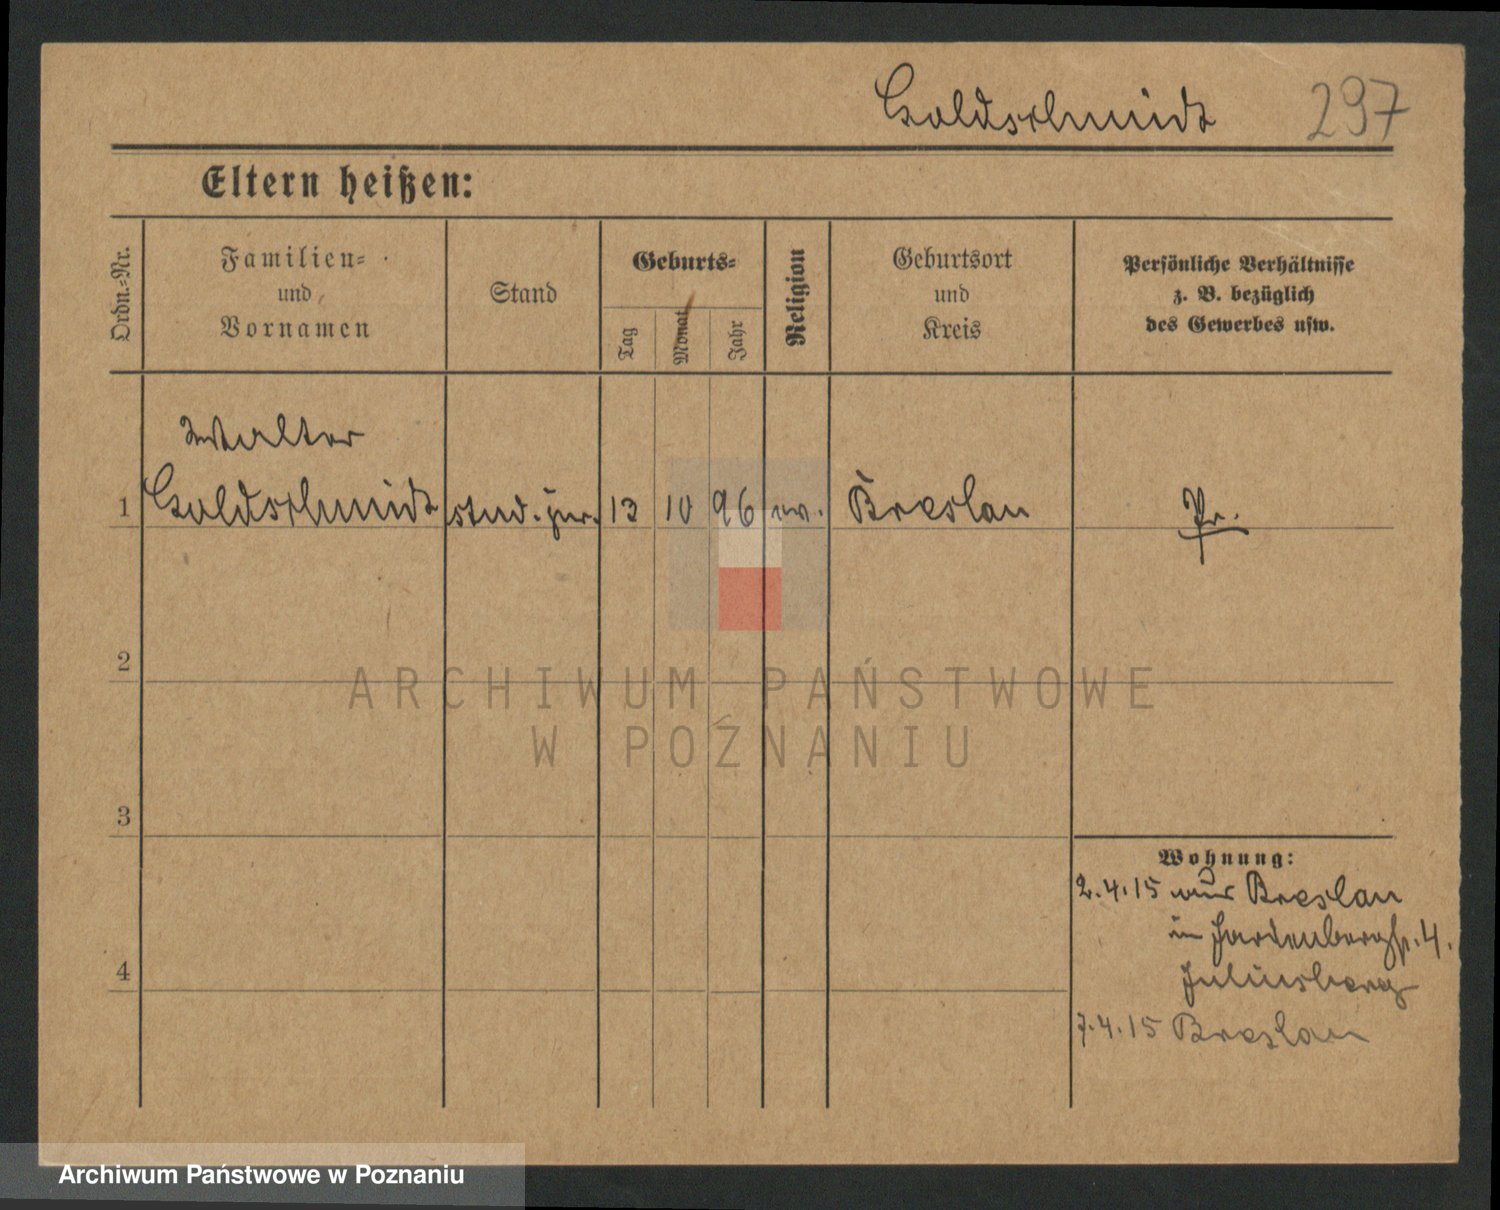 Goldschmidt 297
Eltern heißen:
Ordn.-Nr.
Familien-
und
Vornamen
Stand
Geburts-
Tag
Monat
Jahr
Religion
Geburtsort
und
Kreis
Persönliche Verhältnisse
z. B. bezüglich
des Gewerbes usw.
Walter
1 Goldschmidt stud. jur. 13 10 96 ev. Breslau Pr.
2
ARCHIWUM PAŃSTWOWE
W POZNANIU
3
Wohnung:
2.4.15 aus Breslau
in Hardenbergstr. 4.
4
Juliusberg
7.4.15 Breslau
Archiwum Państwowe w Poznaniu